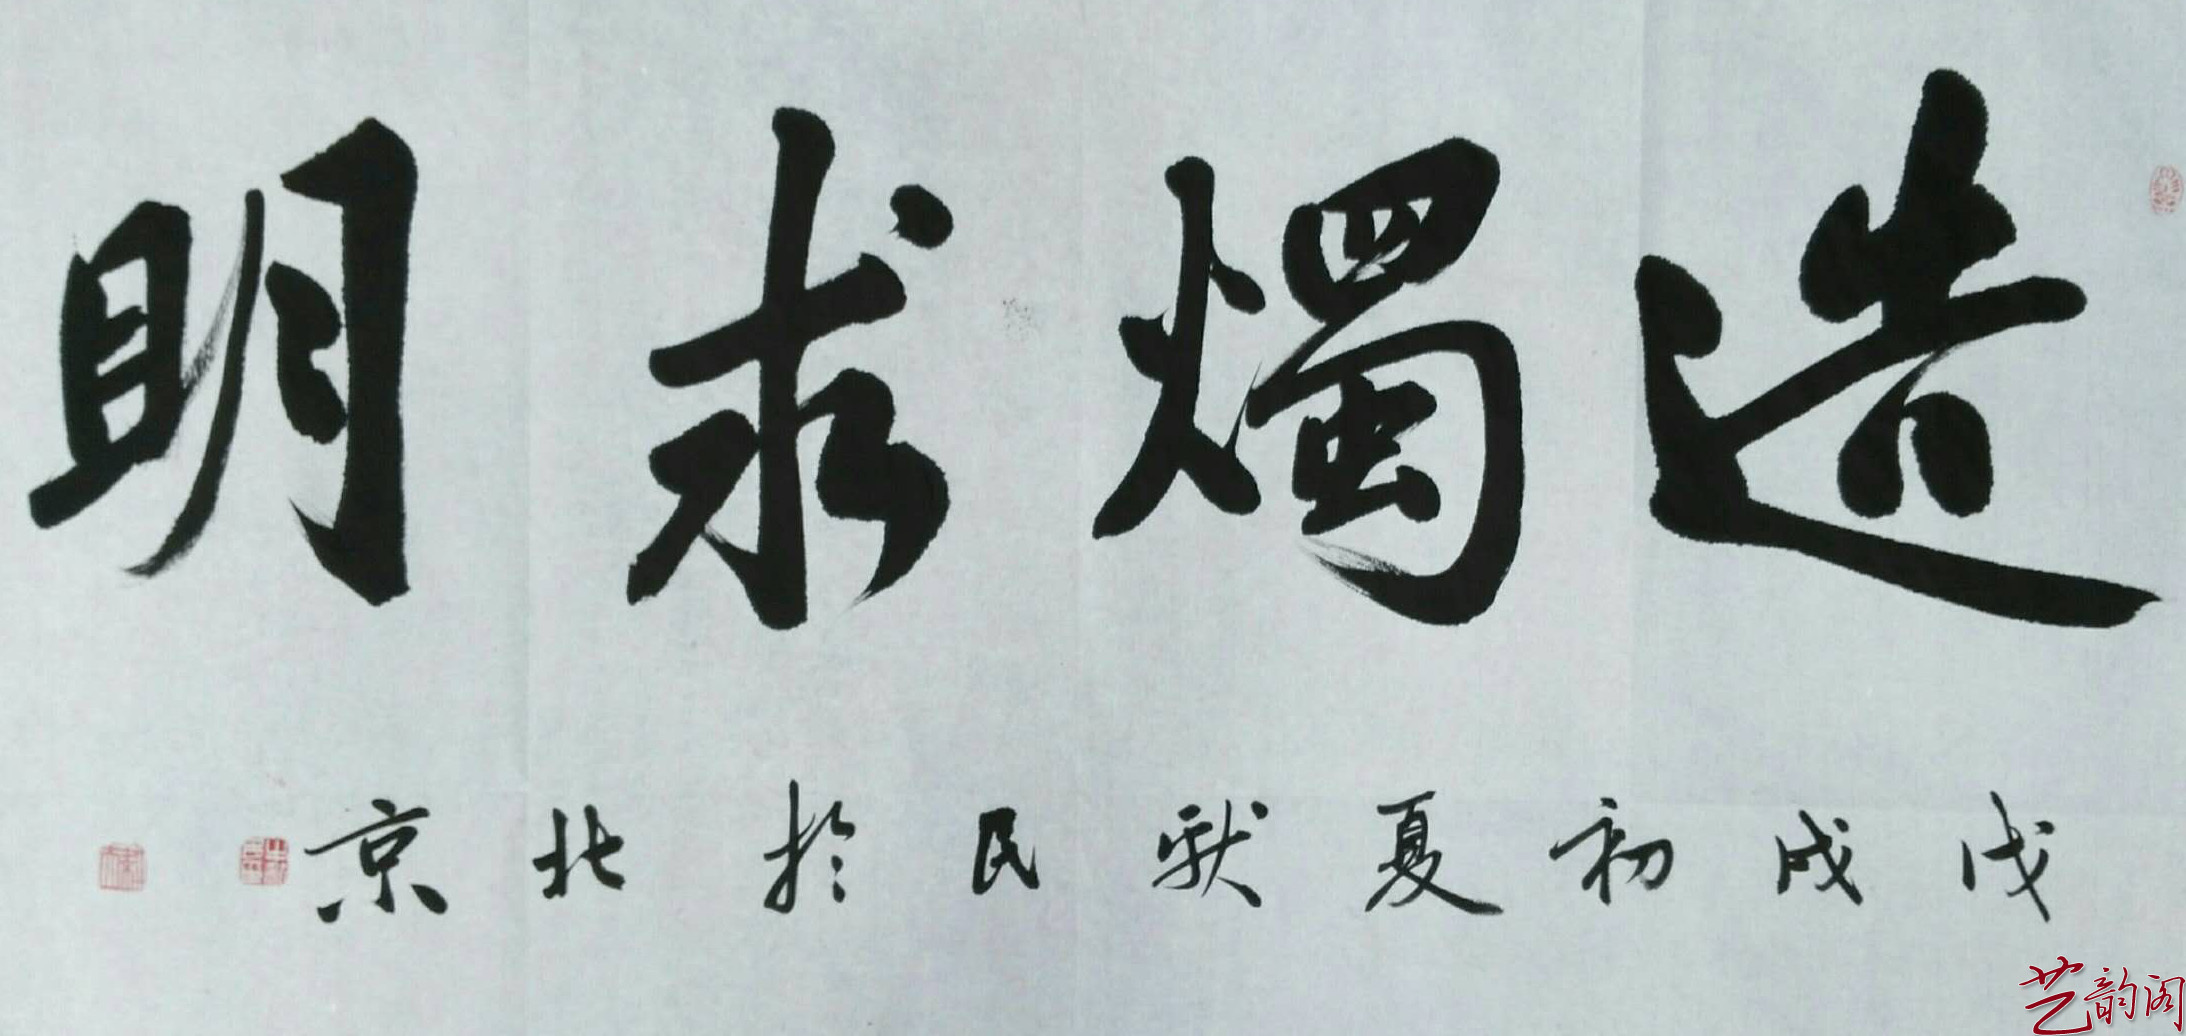 造燭求明
戊戌初夏猷民於北京
艺韵阁